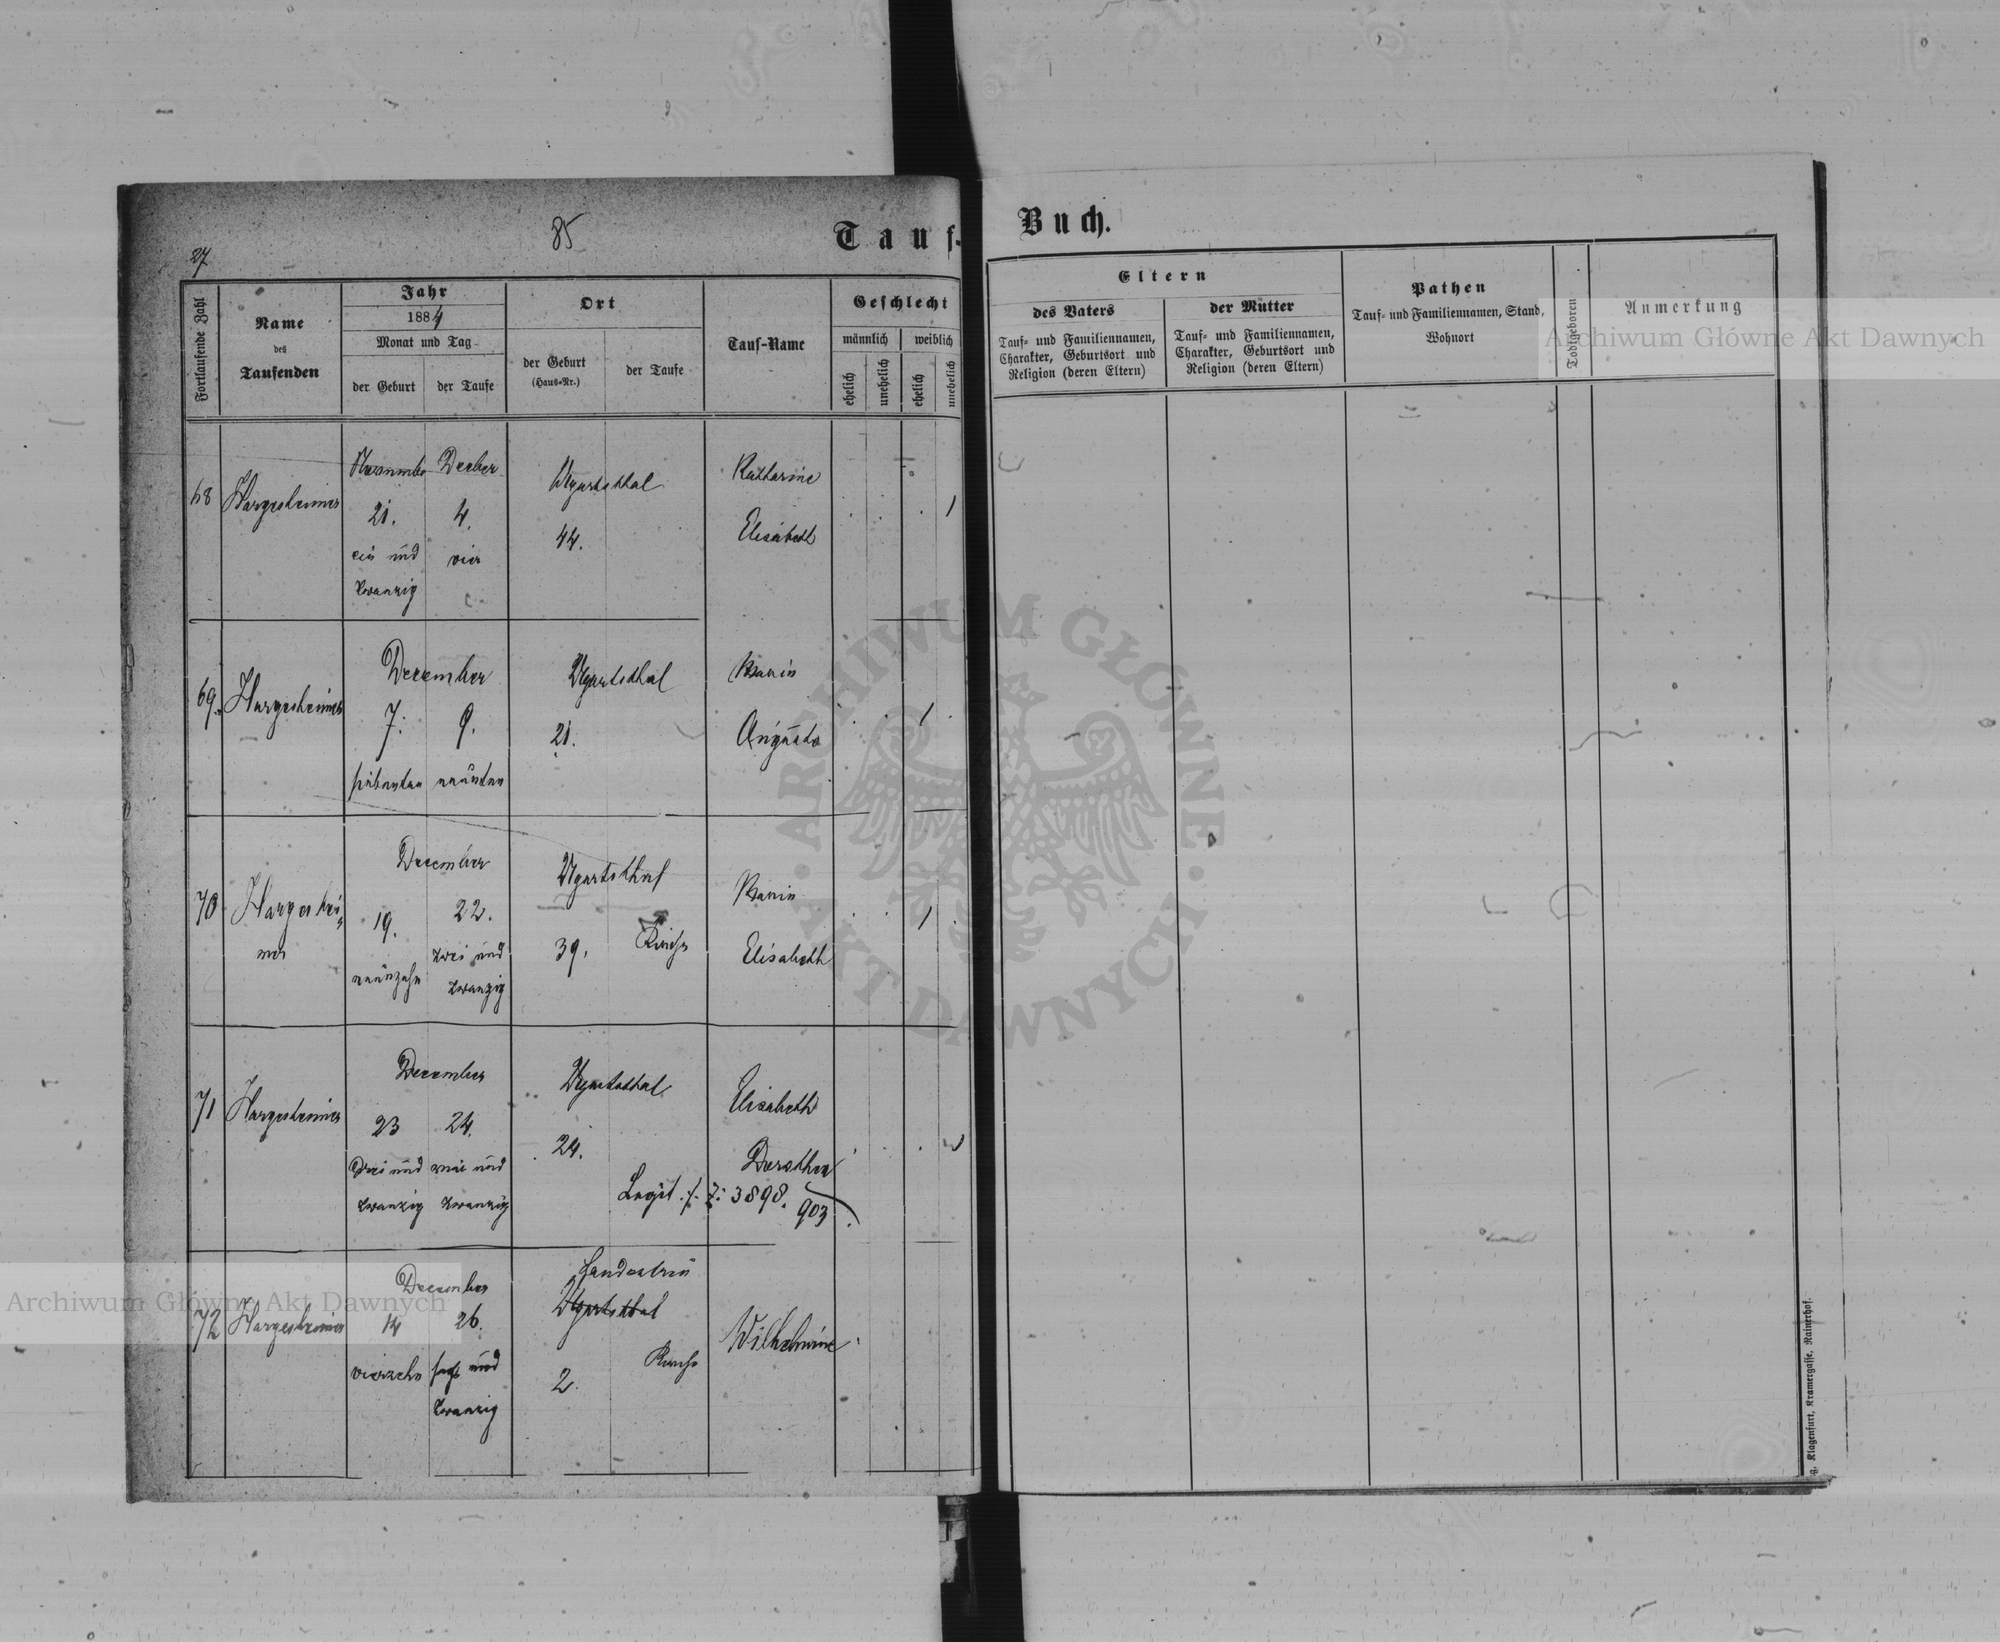 85
27
Tauf-
Buch.
Fortlaufende Zahl
Name
des
Taufenden
Jahr
1884
Monat und Tag
der Geburt
der Taufe
Ort
der Geburt
(Haus-Nr.)
der Taufe
Tauf-Name
Geschlecht
männlich
weiblich
ehelich
unehelich
ehelich
unehelich
Eltern
des Vaters
Tauf- und Familiennamen,
Charakter, Geburtsort und
Religion (deren Eltern)
der Mutter
Tauf- und Familiennamen,
Charakter, Geburtsort und
Religion (deren Eltern)
Pathen
Tauf- und Familiennamen, Stand,
Wohnort
Todtgeboren
Anmerkung
Archiwum Główne Akt Dawnych
68
Hargesheimer
21.
ein und
zwanzig
4.
vier
Ugartsthal
44.
Katharine
Elisabeth
1
69.
Hargesheimer
December
7.
9.
siebenten
neunten
Ugartsthal
21.
Maria
Augusta
1
70
Hargeshei=
mer
December
19.
neunzehn
22.
zwei und
zwanzig
Ugartsthal
39.
Maria
Elisabeth
1
71
Hargesheimer
December
23
24.
drei und
zwanzig
vier und
zwanzig
Ugartsthal
24.
Elisabeth
Dorothea
Legit. Z: 3898.
903
72
Hargesheimer
December
14
26.
vierzehn
sechs und
zwanzig
Landestreu
Ugartsthal
2.
Wilhelmine
ARCHIWUM GŁÓWNE
AKT DAWNYCH
Archiwum Główne Akt Dawnych
Klagenfurt, Kramergasse, Rainerhof.